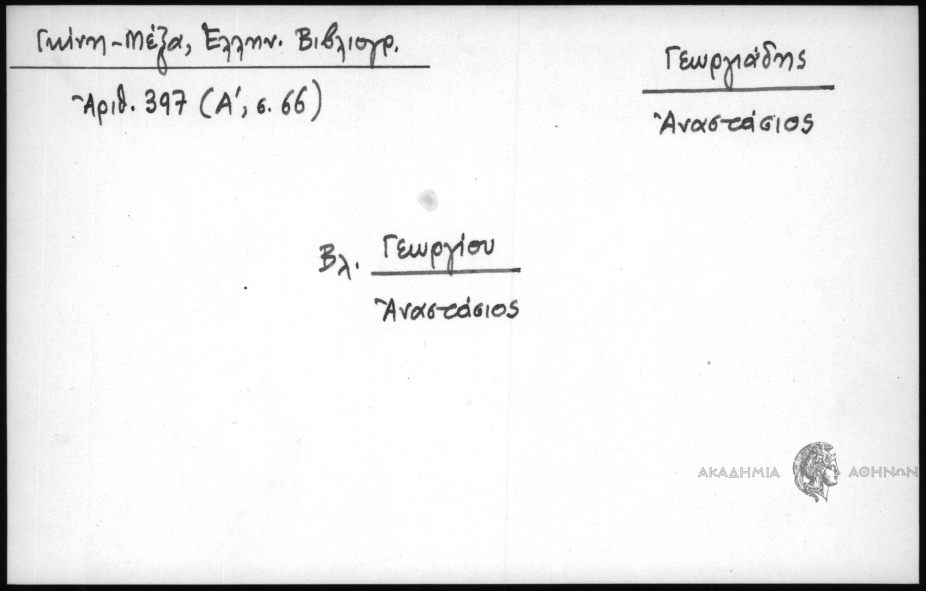 Γκίνη-Μέξα, Ἑλλην. Βιβλιογρ.
Ἀριθ. 397 (Α', σ. 66)
Γεωργιάδης
Ἀναστάσιος
Βλ. Γεωργίου
Ἀναστάσιος
ΑΚΑΔΗΜΙΑ ΑΘΗΝΩΝ